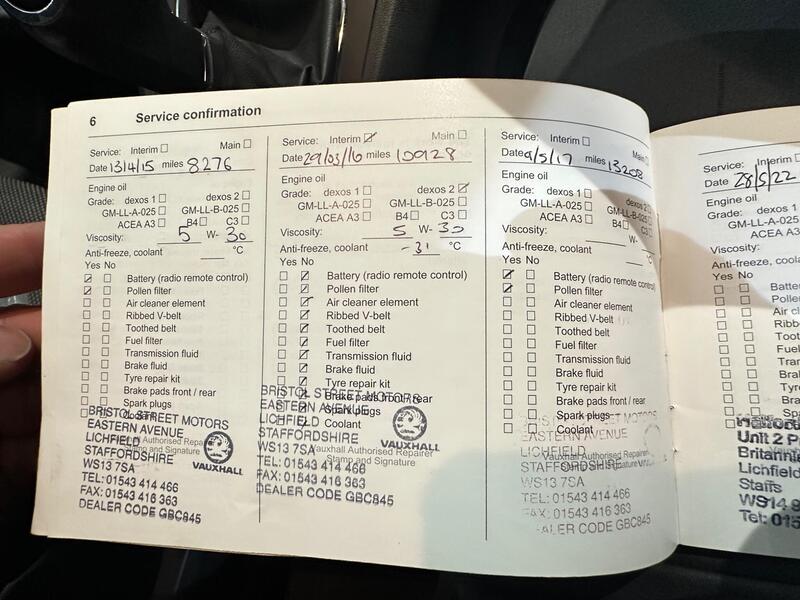 6 Service confirmation
Service: Interim Main
Date 13/4/15 miles 8276
Engine oil
Grade: dexos 1 dexos 2
GM-LL-A-025 GM-LL-B-025
ACEA A3 B4 C3
Viscosity: 5 W- 30
Anti-freeze, coolant °C
Yes No
Battery (radio remote control)
Pollen filter
Air cleaner element
Ribbed V-belt
Toothed belt
Fuel filter
Transmission fluid
Brake fluid
Tyre repair kit
Brake pads front / rear
Spark plugs
Coolant
BRISTOL STREET MOTORS
EASTERN AVENUE
LICHFIELD
STAFFORDSHIRE
WS13 7SA
TEL: 01543 414 466
FAX: 01543 416 363
DEALER CODE GBC845
Vauxhall Authorised Repairer
Stamp and Signature
VAUXHALL
Service: Interim Main
Date 29/03/16 miles 10928
Engine oil
Grade: dexos 1 dexos 2
GM-LL-A-025 GM-LL-B-025
ACEA A3 B4 C3
Viscosity: 5 W- 30
Anti-freeze, coolant -31 °C
Yes No
Battery (radio remote control)
Pollen filter
Air cleaner element
Ribbed V-belt
Toothed belt
Fuel filter
Transmission fluid
Brake fluid
Tyre repair kit
Brake pads front / rear
Spark plugs
Coolant
BRISTOL STREET MOTORS
EASTERN AVENUE
LICHFIELD
STAFFORDSHIRE
WS13 7SA
TEL: 01543 414 466
FAX: 01543 416 363
DEALER CODE GBC845
Vauxhall Authorised Repairer
Stamp and Signature
VAUXHALL
Service: Interim Main
Date 9/5/17 miles 13208
Engine oil
Grade: dexos 1 dexos 2
GM-LL-A-025 GM-LL-B-025
ACEA A3 B4 C3
Viscosity: W-
Anti-freeze, coolant °C
Yes No
Battery (radio remote control)
Pollen filter
Air cleaner element
Ribbed V-belt
Toothed belt
Fuel filter
Transmission fluid
Brake fluid
Tyre repair kit
Brake pads front / rear
Spark plugs
Coolant
EASTERN AVENUE
LICHFIELD
STAFFORDSHIRE
WS13 7SA
TEL: 01543 414 466
FAX: 01543 416 363
DEALER CODE GBC845
Vauxhall Authorised Repairer
Service: Interim
Date 28/5/22
Engine oil
Grade: dexos 1
GM-LL-A-025
ACEA A3
Viscosity:
Anti-freeze, coolant
Yes No
Unit 2
Lichfield
Staffs
WS14 9
Tel: 015